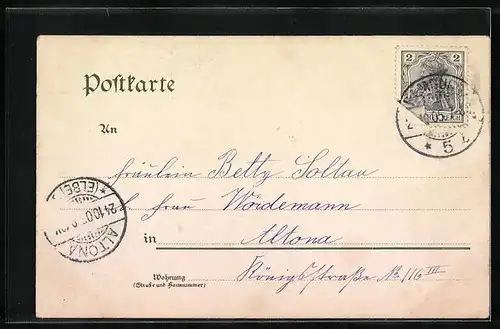 Postkarte
2 2
REICH
* 5
An
Fräulein Betty Soltau
Frau Wördemann
in Altona
Wohnung
(Straße und Hausnummer)
Königsstraße No 116 III
ALTONA
* (ELBE)